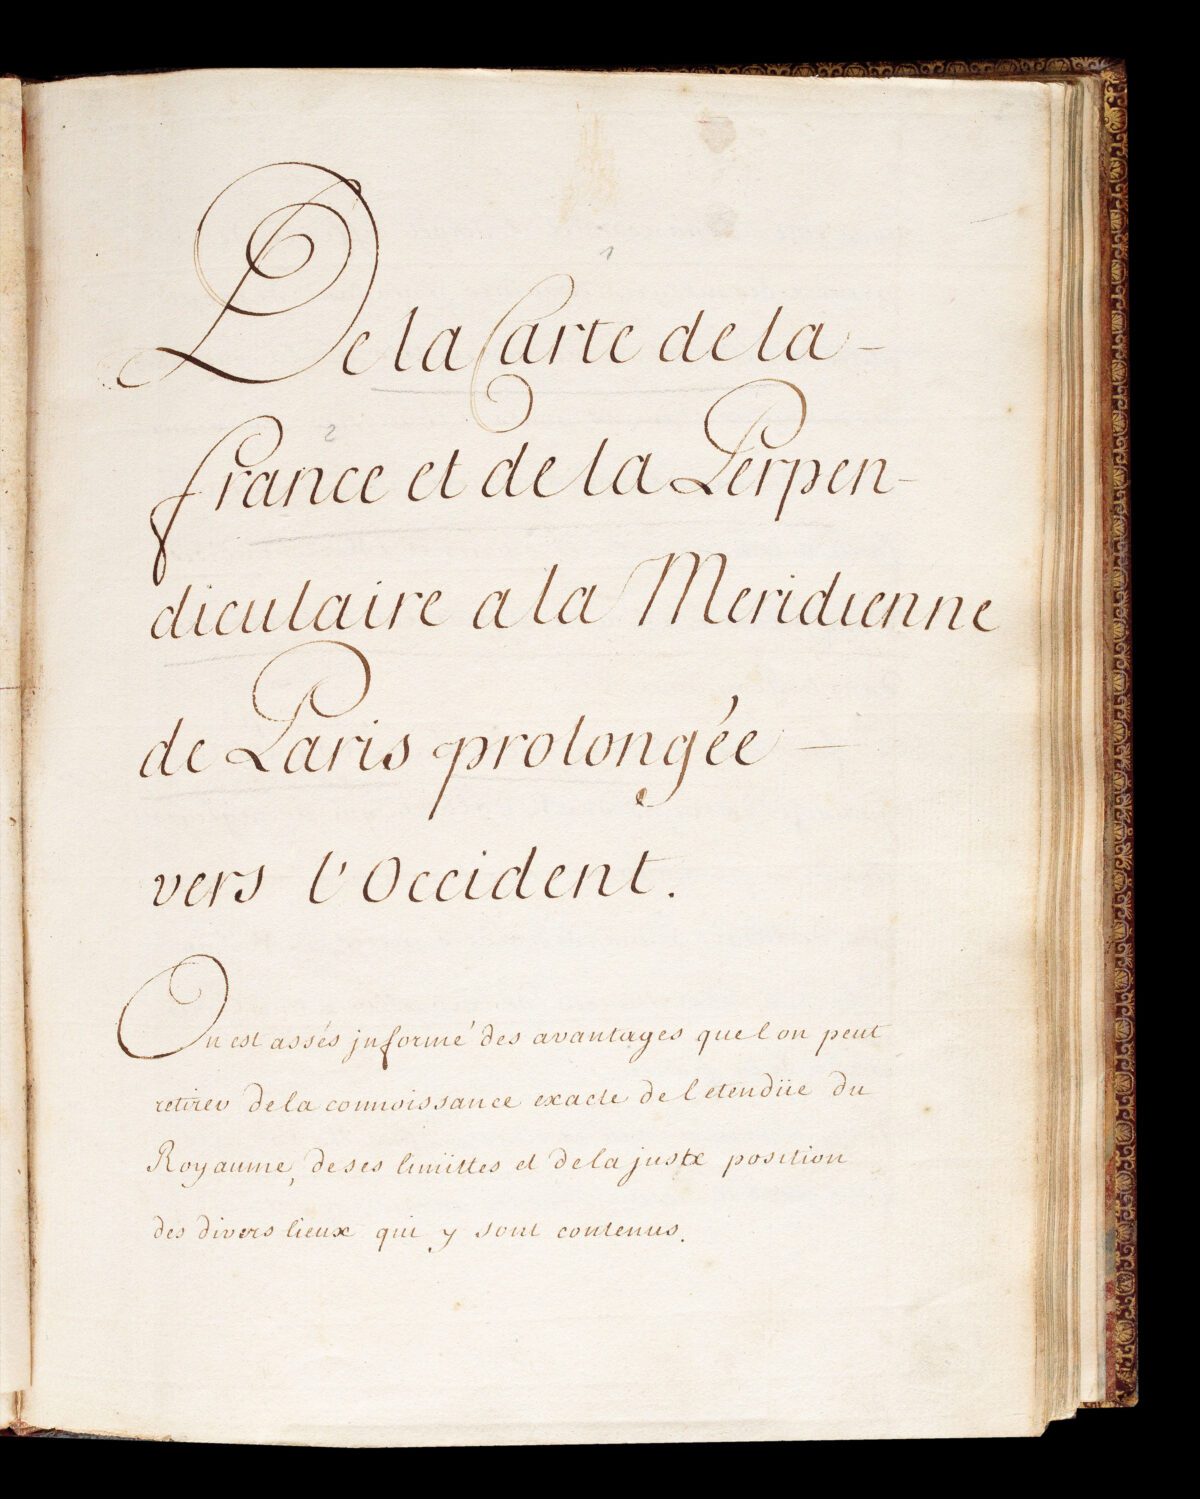 De la Carte de la
france et de la Perpen-
diculaire a la Meridienne
de Paris prolongée
vers l'Occident.
On est assés jnformé des avantages que l on peut
retirer de la connoissance exacte de l etendüe du
Royaume, de ses limittes et de la juste position
des divers lieux qui y sont contenus.